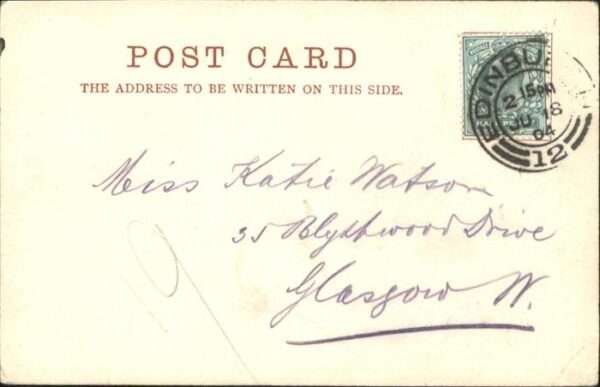 POST CARD
THE ADDRESS TO BE WRITTEN ON THIS SIDE.
EDINBU
2.15PM
JU 18
04
12
Miss Katie Watson
35 Blythswood Drive
Glasgow W.
19